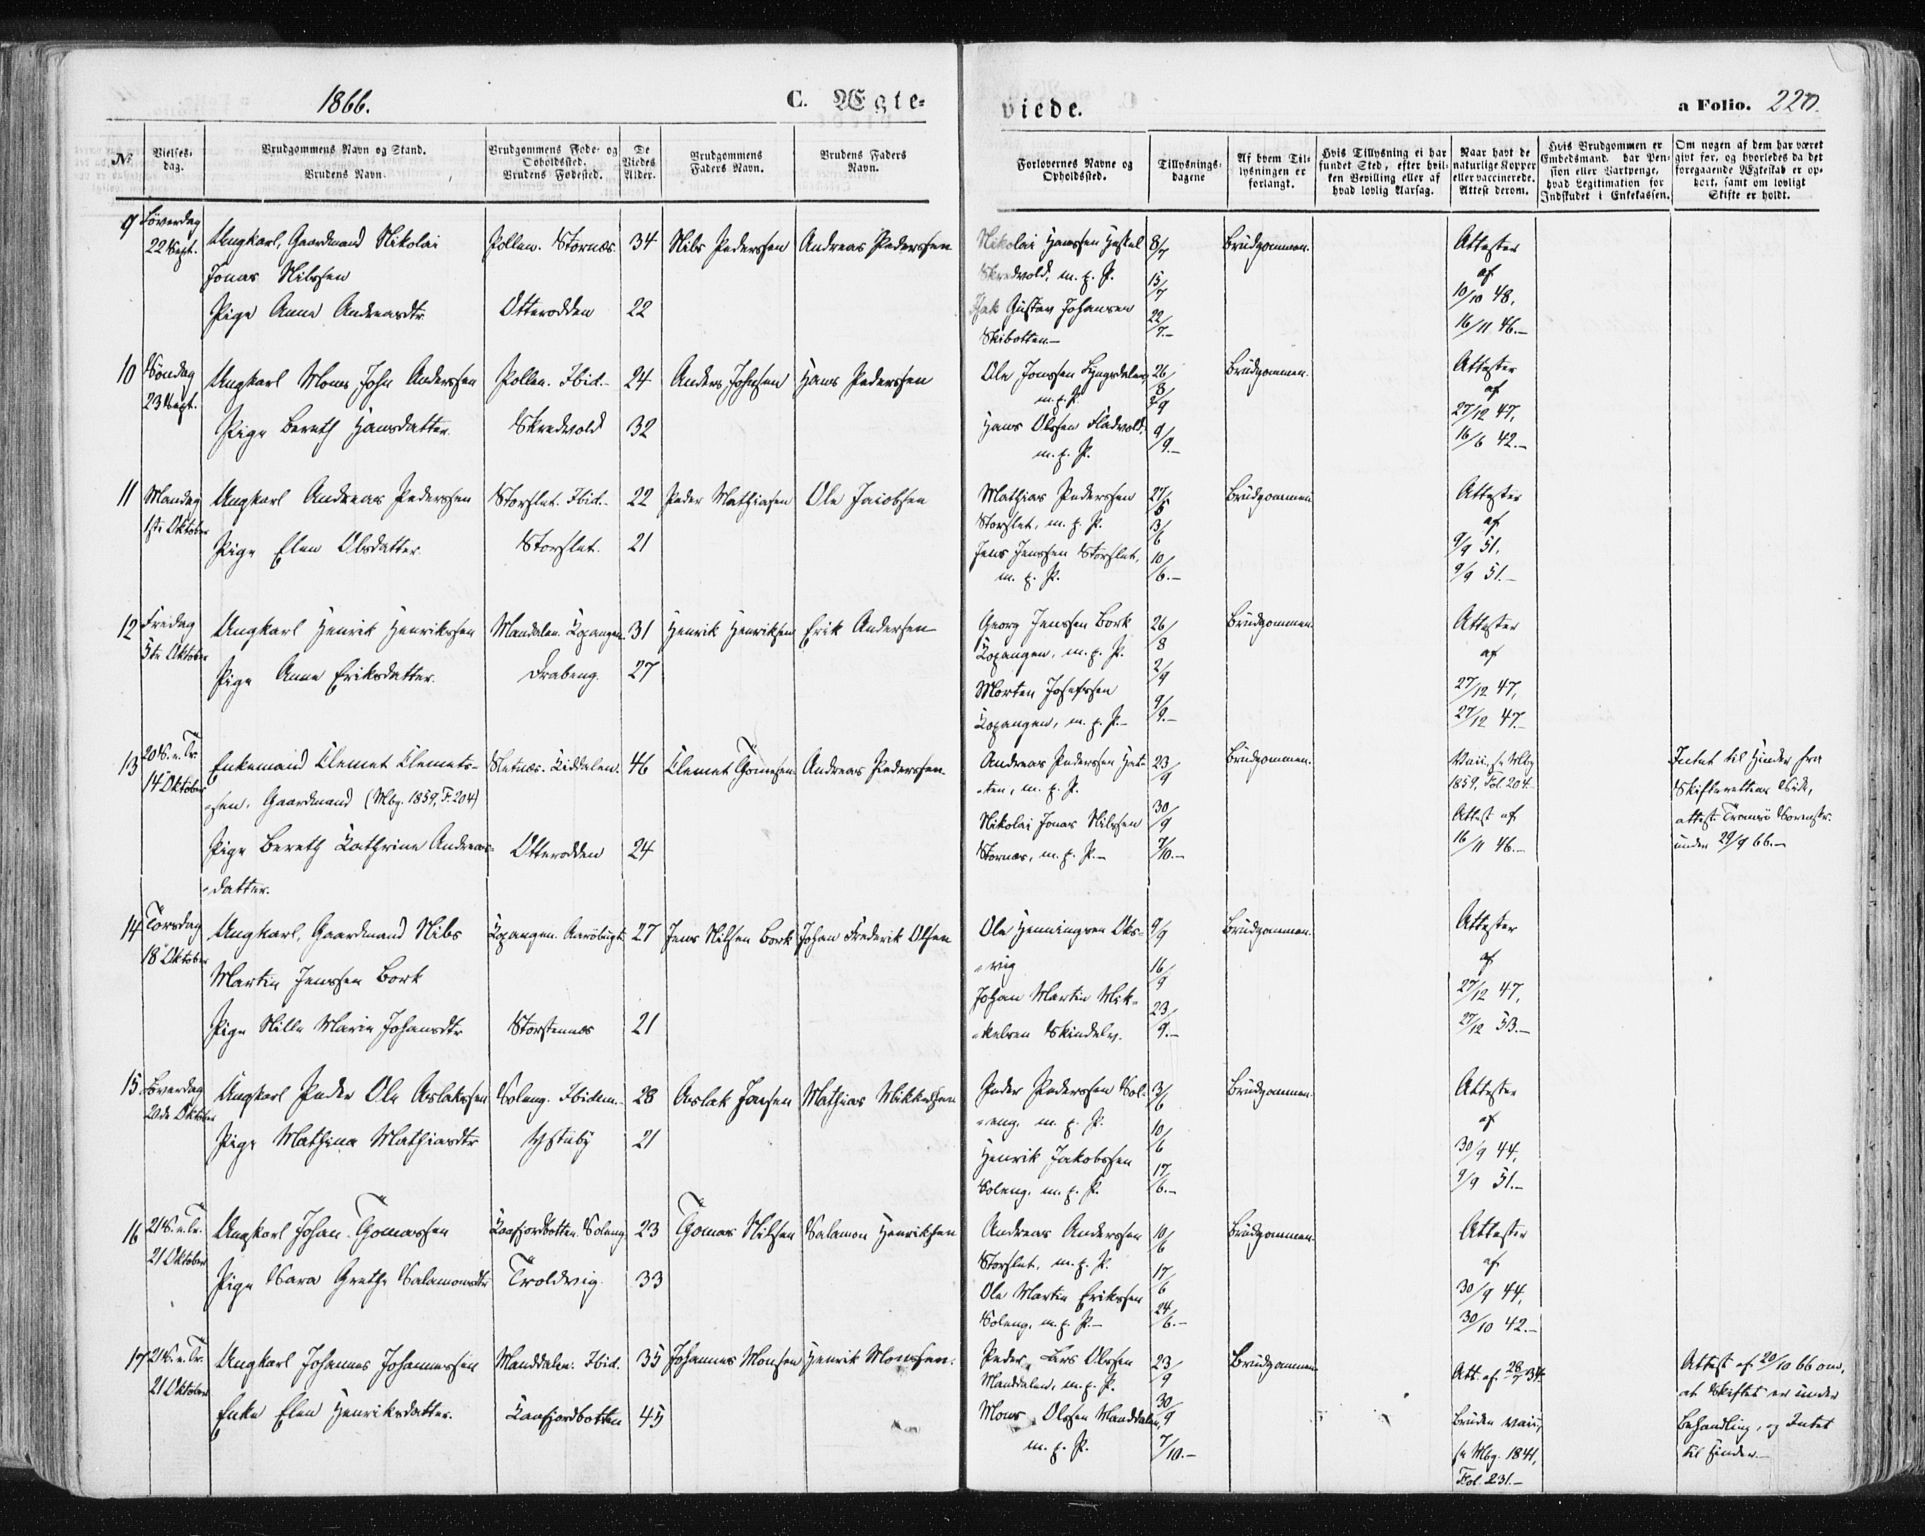 1866.
C. Ægte-
viede.
a Folio. 220.
No
Vielses-
dag.
Brudgommens Navn og Stand.
Brudens Navn.
Brudgommens Føde- og
Opholdssted.
Brudens Fødested.
De
Viedes
Alder.
Brudgommens
Faders Navn.
Brudens Faders
Navn.
Forlovernes Navne og
Opholdssted.
Tillysnings-
dagene
Af hvem Til-
lysningen er
forlangt.
Hvis Tillysning ei har
fundet Sted, efter hvil-
ken Bevilling eller af
hvad lovlig Aarsag.
Naar havt de
naturlige Kopper
eller vaccinerede.
Attest derom.
Hvis Brudgommen er
Embedsmand, har Pen-
sion eller Vartpenge,
hvad Legitimation for
Indskudet i Enkekassen.
Om nogen af dem har været
gift før, og hvorledes da det
foregaaende Ægteskab er op-
hørt, samt om lovligt
Skifte er holdt.
9 Løverdag 22 Sept.
Ungkarl, Gaardmand Nikolai
Jonas Nilssen
Pige Anna Andreasdtr
Pollen. Stornæs. 34
Otterodden 22
Nils Pederssen
Andreas Pederssen
Nikolai Hanssen
Skredvold. m. f. P.
Isak Gustav Johansen
Skibotten.—
8/7
15/7
22/7.—
Brudgommen.
Attester
af
10/10 48.
16/11 46.—
10 Søndag 23 Sept.
Ungkarl Mons John Anderssen
Pige Bereth Hansdatter.
Pollen. Ibid.— 24
Skredvold 32
Anders Johnsen
Hans Pederssen
Ole Jonssen Lyngsdalen,
m. f. P.
Hans Olssen Fladvold.
m. f. P.
26/8
2/9
9/9.—
Brudgommen.
Attester
af
27/12 47,
16/6 42.—
11 Mandag 1ste Oktober
Ungkarl Andreas Pederssen
Pige Elen Olsdatter.
Storslet. Ibid.— 22
Storslet. 21
Peder Mathiasen
Ole Jacobsen
Mathias Pederssen
Storslet, m. f. P.
Jens Jenssen Storslet,
m. f. P.
27/5
3/6
10/6.—
Brudgommen.
Attester
af
9/9 51.
9/9 51.—
12 Fredag 5te Oktober
Ungkarl Henrik Henrikssen
Pige Anne Eriksdatter.
Mandalen. Kopangen. 31
Drabeng. 27
Henrik Henriksen
Erik Andersen
Georg Jenssen Bork
Kopangen, m. f. P.
Morten Josefssen
Kopangen, m. f. P.—
26/8
2/9
9/9.—
Brudgommen.
Attester
af
27/12 47,
27/12 47.—
13 20 S. e. Tr. 14 Oktober
Enkemand Clemet Clemets-
sen. Gaardmand (Mbg. 1859, F. 204)
Pige Bereth Kathrine Andreas-
datter.
Sletnæs. Kiddalen. 46
Otterodden 24
Clemet Tomesen
Andreas Pederssen.
Andreas Pederssen Hat-
ten, m. f. P.
Nikolai Jonas Nilssen
Stornæs, m. f. P.—
23/9
30/9
7/10.—
Brudgommen.
Vacc. se Mbg
1859, Fol. 204.
Attest af
16/11 46.—
Intet til Hinder fra
Skifterettens Side,
attest. Tromsø Sorenskr.
under 29/9 66.—
14 Torsdag 18 Oktober
Ungkarl, Gaardmand Nils
Martin Jenssen Bork
Pige Nille Marie Johansdtr
Kopangen. Aarøbugt. 27
Storstennes 21
Jens Nilsen Bork
Johan Frederik Olsen
Ole Henningsen Oks-
vig
Johan Martin Mik-
kelsen Skindelv.
9/9
16/9
23/9.—
Brudgommen.
Attester
af
27/12 47,
27/12 53.—
15 Løverdag 20de Oktober
Ungkarl Peder Ole Aslakssen
Pige Mathina Mathiasdtr
Soleng. Ibidem.— 28
21
Aslak Jonsen
Mathias Mikkelsen
Peder Pederssen Sol-
eng. m. f. P.
Henrik Jakobssen
Soleng. m. f. P.
3/6
10/6
17/6.—
Brudgommen.
Attester
af
30/9 44,
9/9 51.—
16 21 S. e. Tr. 21 Oktober
Ungkarl Johan Thomassen
Pige Sara Grethe Salamonsdtr
Kaafjordbotten. Soleng. 23
Troldvig. 33
Tomas Nilsen
Salamon Henriksen
Andreas Anderssen
Storslet, m. f. P.
Ole Martin Erikssen
Soleng, m. f. P.—
10/6
17/6
24/6.—
Brudgommen.
Attester
af
30/9 44,
30/10 42.—
17 21 S. e. Tr. 21 Oktober
Ungkarl Johannes Johannessen
Enke Elen Henriksdatter.
Manddalen. Ibid. 35
Kaafjordbotten 45
Johannes Monsen
Henrik Monssen.
Peder Lars Olssen
Manddalen, m. f. P.
Mons Olssen Manddalen,
m. f. P.
23/9
30/9
7/10.—
Brudgommen
Att. af 28/7 34.
Bruden vacc,
se Mbg. 1841,
Fol. 231.—
Attest af 20/10 66 om,
at Skiftet er under
Behandling, og Intet
til Hinder.—